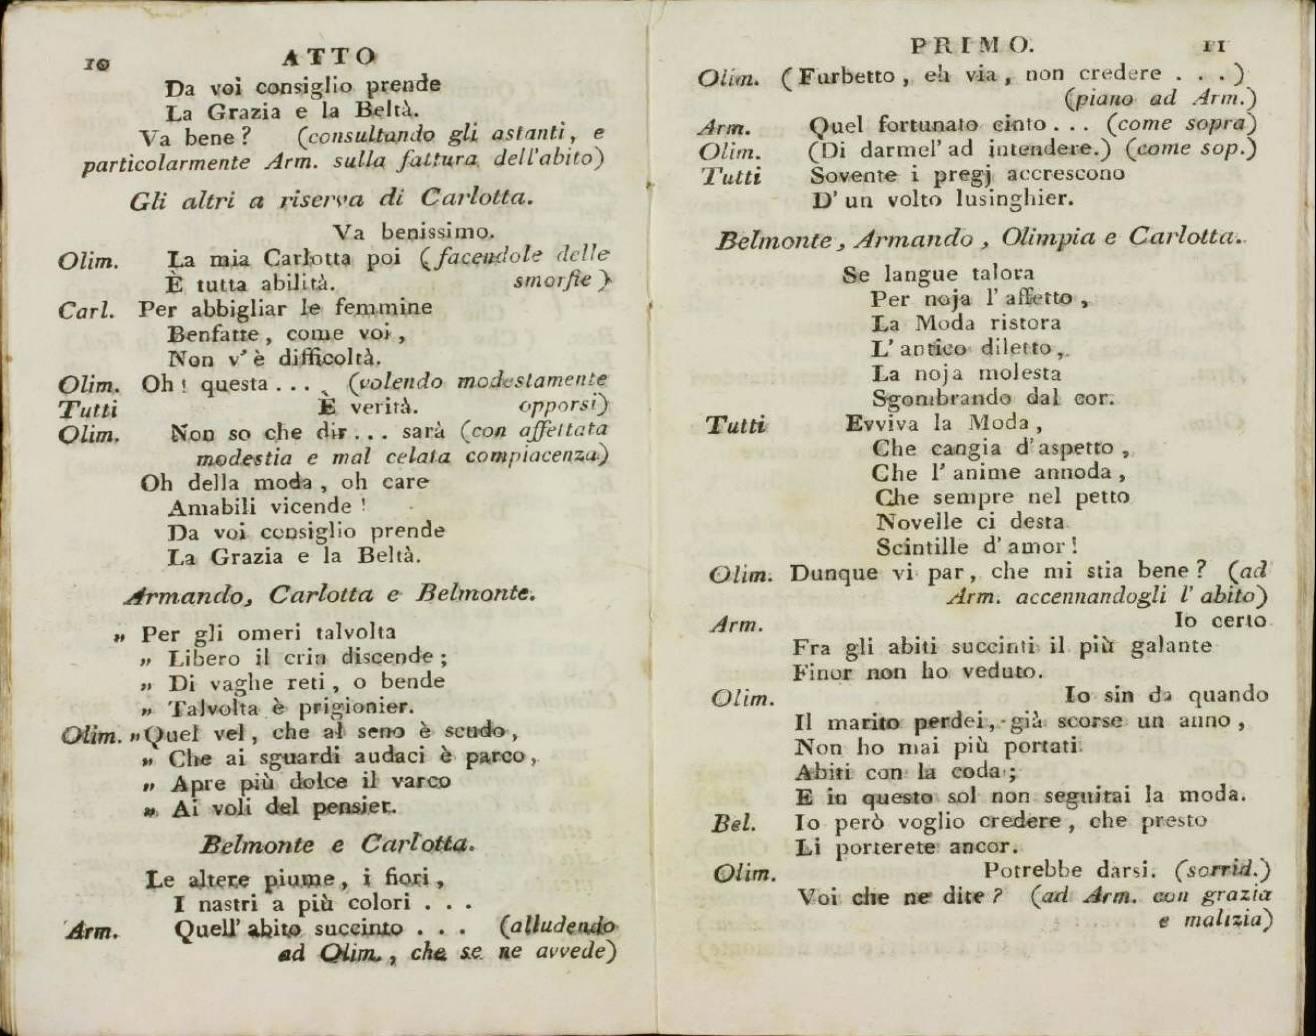 10 ATTO
Da voi consiglio prende
La Grazia e la Beltà.
Va bene? (consultando gli astanti, e
particolarmente Arm. sulla fattura dell'abito)
Gli altri a riserva di Carlotta.
Va benissimo.
Olim. La mia Carlotta poi (facendole delle
È tutta abilità. smorfie)
Carl. Per abbigliar le femmine
Benfatte, come voi,
Non v'è difficoltà.
Olim. Oh! questa... (volendo modestamente
Tutti È verità. opporsi)
Olim. Non so che dir... sarà (con affettata
modestia e mal celata compiacenza)
Oh della moda, oh care
Amabili vicende!
Da voi consiglio prende
La Grazia e la Beltà.
Armando, Carlotta e Belmonte.
„ Per gli omeri talvolta
„ Libero il crin discende;
„ Di vaghe reti, o bende
„ Talvolta è prigionier.
Olim. „Quel vel, che al seno è scudo,
„ Che ai sguardi audaci è parco,
„ Apre più dolce il varco
„ Ai voli del pensier.
Belmonte e Carlotta.
Le altere piume, i fiori,
I nastri a più colori...
Arm. Quell' abito succinto... (alludendo
ad Olim., che se ne avvede)
PRIMO. 11
Olim. (Furbetto, eh via, non credere...)
(piano ad Arm.)
Arm. Quel fortunato cinto... (come sopra)
Olim. (Di darmel' ad intendere.) (come sop.)
Tutti Sovente i pregj accrescono
D' un volto lusinghier.
Belmonte, Armando, Olimpia e Carlotta.
Se langue talora
Per noja l' affetto,
La Moda ristora
L' antico diletto,
La noja molesta
Sgombrando dal cor.
Tutti Evviva la Moda,
Che cangia d' aspetto,
Che l' anime annoda,
Che sempre nel petto
Novelle ci desta
Scintille d' amor!
Olim. Dunque vi par, che mi stia bene? (ad
Arm. accennandogli l' abito)
Arm. Io certo
Fra gli abiti succinti il più galante
Finor non ho veduto.
Olim. Io sin da quando
Il marito perdei, già scorse un anno,
Non ho mai più portati
Abiti con la coda;
E in questo sol non seguitai la moda.
Bel. Io però voglio credere, che presto
Li porterete ancor.
Olim. Potrebbe darsi. (sorrid.)
Voi che ne dite? (ad Arm. con grazia
e malizia)